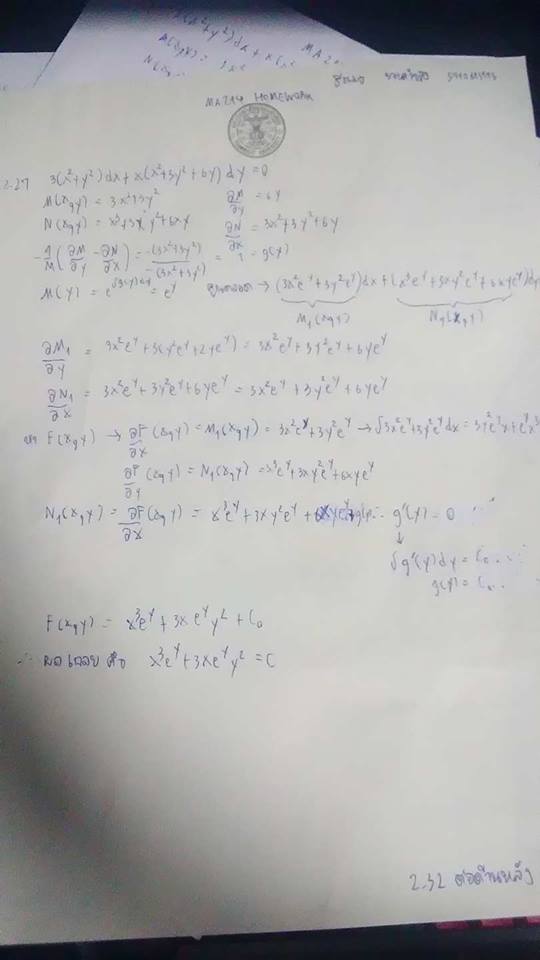 MA214 HOMEWORK
2.27 3(x²+y²)dx + x(x²+3y²+6y)dy = 0
M(x,y) = 3x²+3y² ∂M/∂y = 6y
N(x,y) = x³+3xy²+6xy ∂N/∂x = 3x²+3y²+6y
-1/M (∂M/∂y - ∂N/∂x) = -(3x²+3y²)/-(3x²+3y²) = 1 = g(y)
M(y) = e^∫g(y)dy = e^y → (3x²e^y+3y²e^y)dx + (x³e^y+3xy²e^y+6xye^y)dy
M₁(x,y) N₁(x,y)
∂M₁/∂y = 3x²e^y+3(y²e^y+2ye^y) = 3x²e^y+3y²e^y+6ye^y
∂N₁/∂x = 3x²e^y+3y²e^y+6ye^y = 3x²e^y+3y²e^y+6ye^y
หา F(x,y) → ∂F/∂x (x,y) = M₁(x,y) = 3x²e^y+3y²e^y → ∫3x²e^y+3y²e^y dx = 3y²e^y x+e^y x³
∂F/∂y (x,y) = N₁(x,y) = x³e^y+3xy²e^y+6xye^y
N₁(x,y) = ∂F/∂x (x,y) = x³e^y+3xy²e^y+6xye^y+g'(y) ∴ g'(y) = 0
↓
∫g'(y)dy = C₀
g(y) = C₀
F(x,y) = x³e^y+3xe^y y²+C₀
∴ ผลเฉลย คือ x³e^y+3xe^y y² = C
2.32 ต่อด้านหลัง